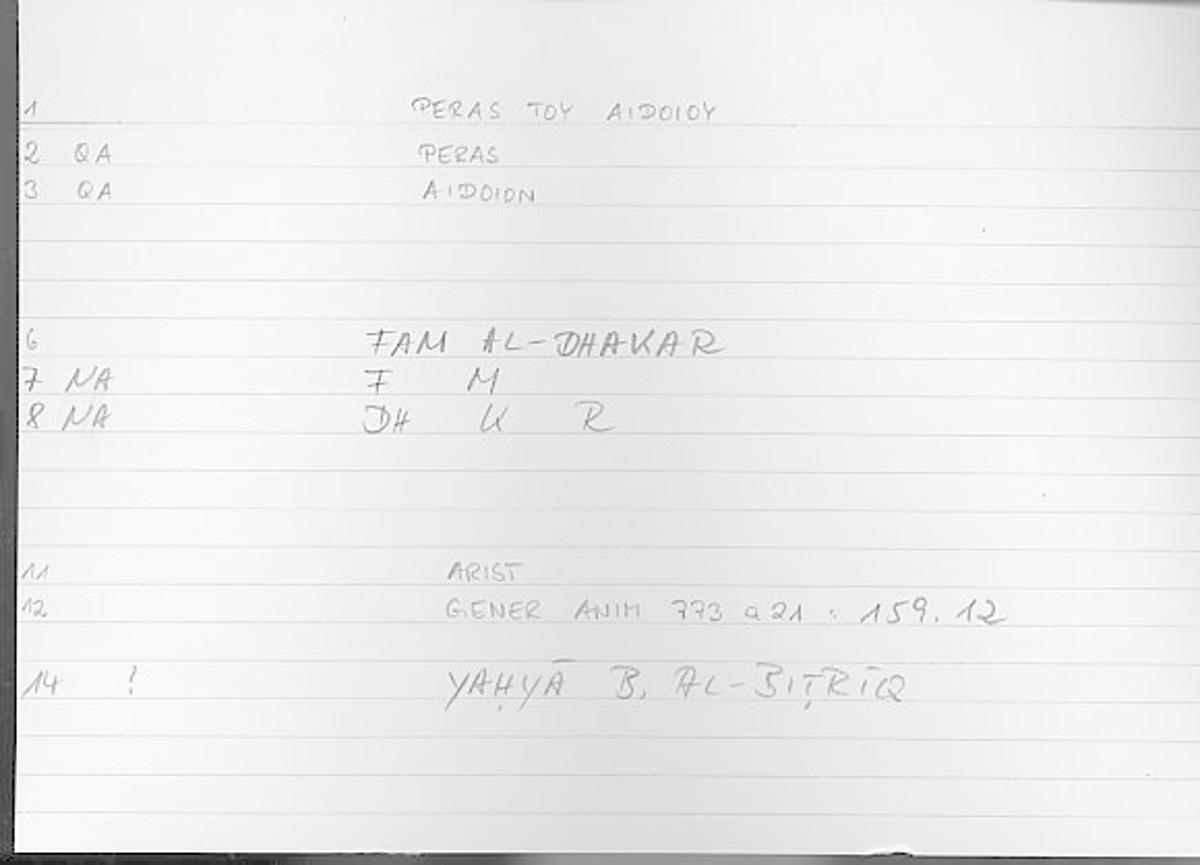 1 PERAS TOY AIDOIOY
2 QA PERAS
3 QA AIDOION
6 FAM AL-DHAKAR
7 NA F M
8 NA DH K R
11 ARIST
12 GENER ANIM 773 a 21 : 159.12
14 ! YAḤYĀ B. AL-BIṬRĪQ